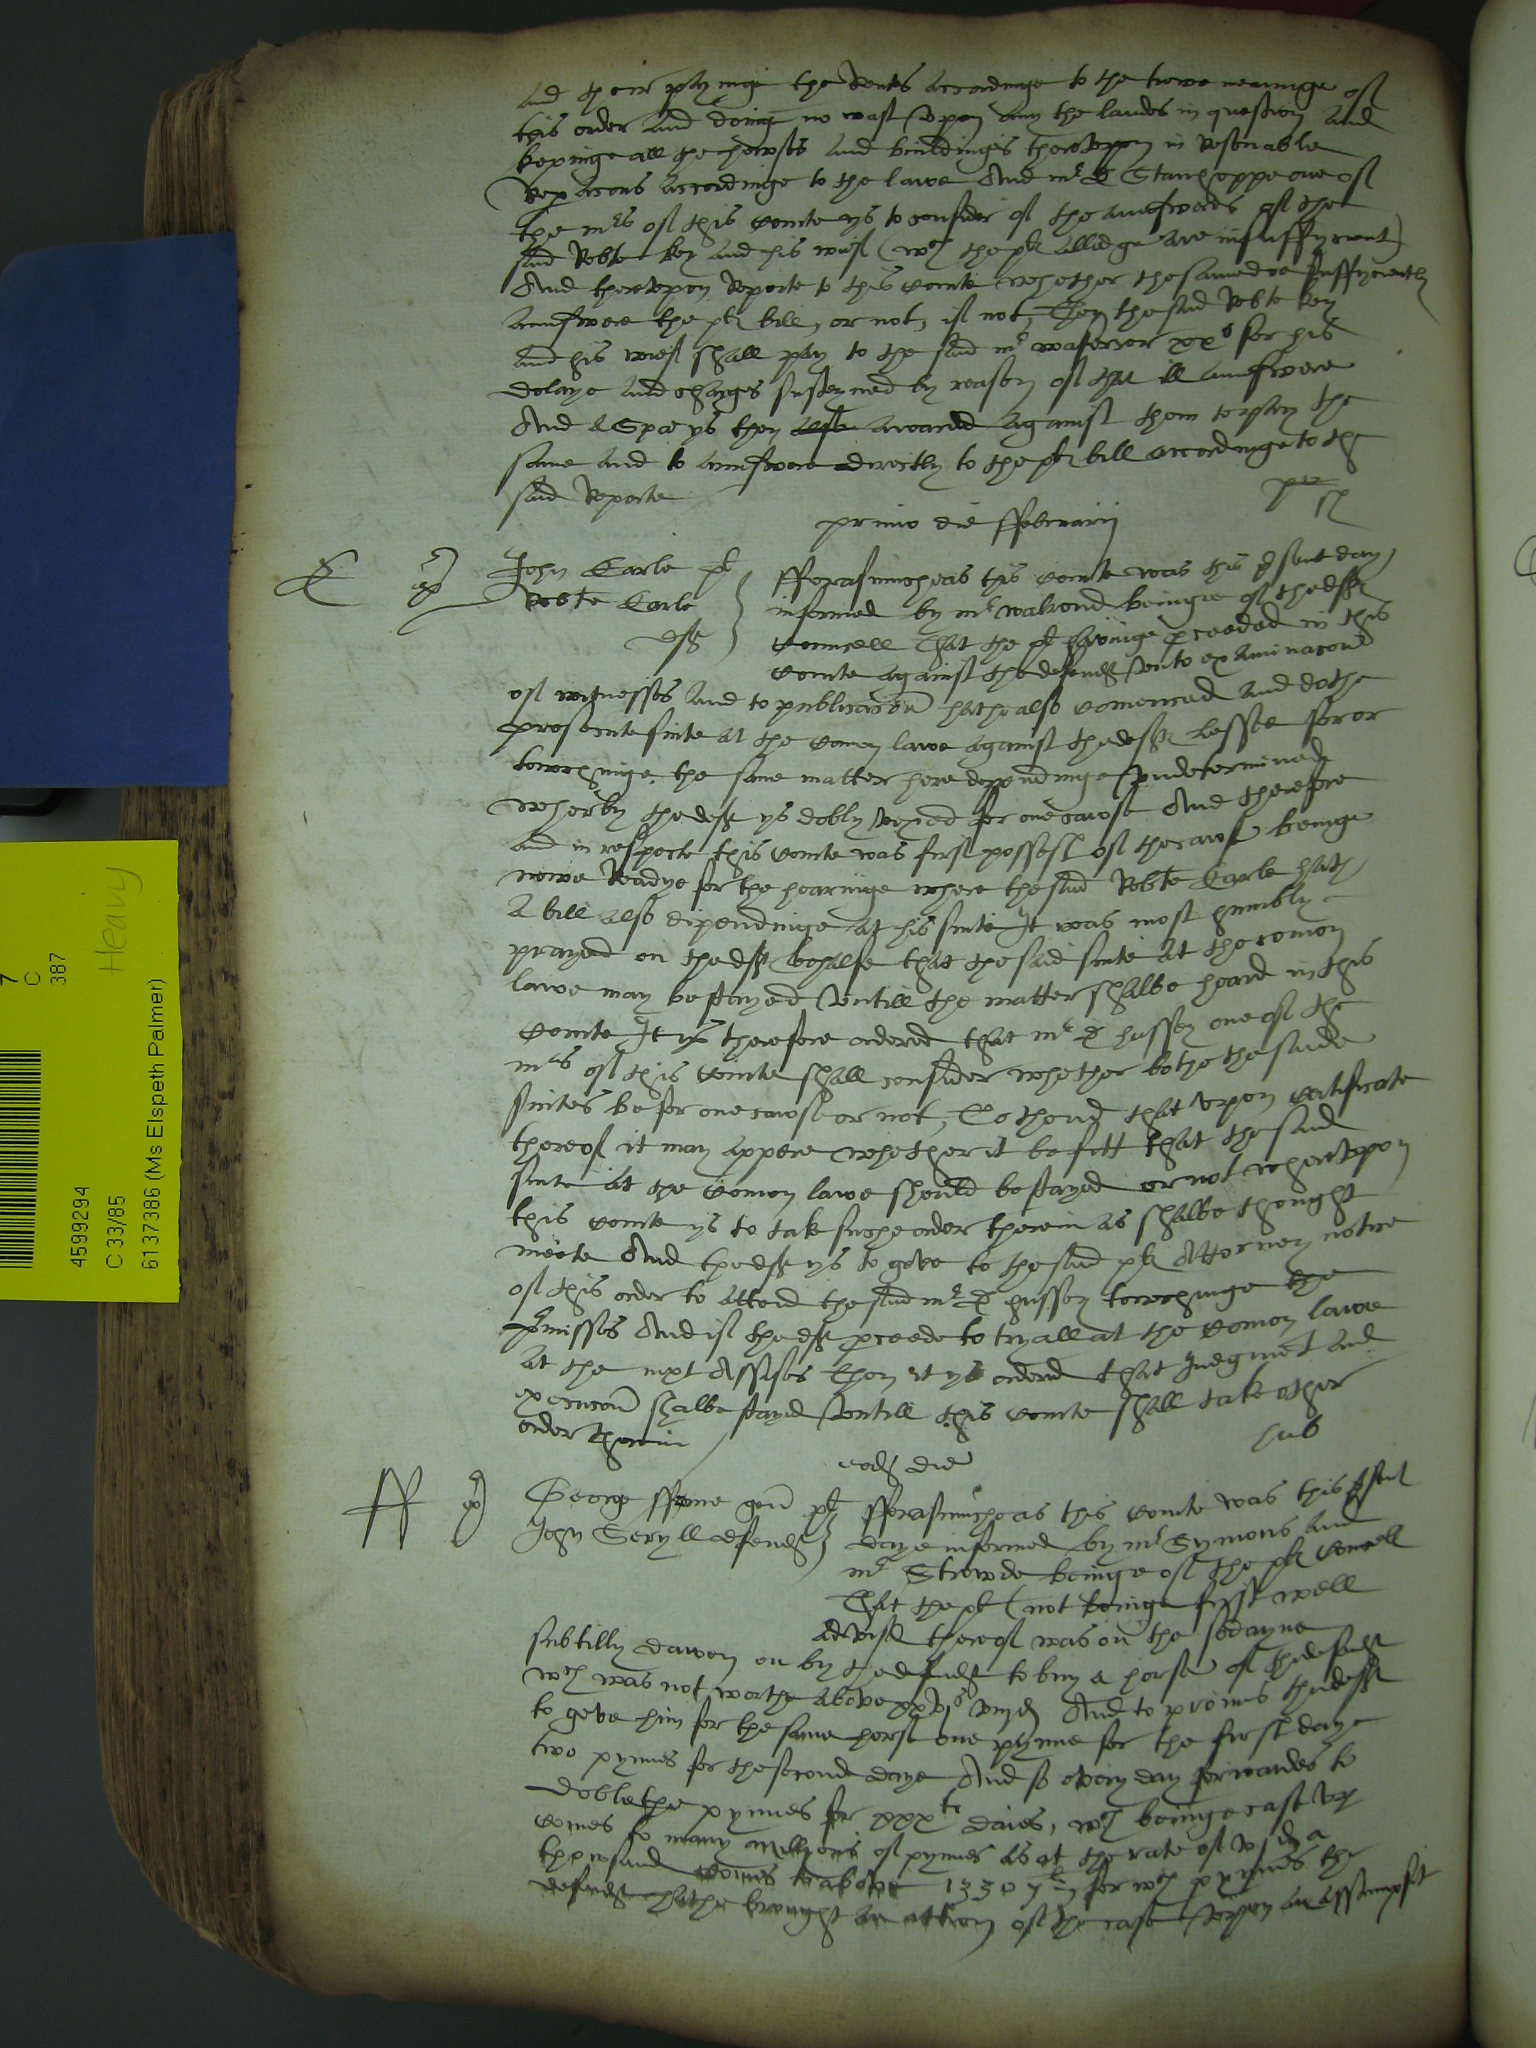 and their payinge the Rentes accordinge to the trewe meaninge of
this order and doing no wast vpon any the landes in question and
kepinge all the howses and buildinges therevppon in Resonable
Repacons accordinge to the lawe And mr D Stanhoppe one of
the mrs of this Courte ys to consider of the aunswers of the
said Robte Key and his wief (wch the pl alledge are insuffycyent)
And therevpon Reporte to this Courte whether the same do suffycyently
aunswere the pl bill, or not, if not, Then the said Robte Key
and his wief shall pay to the said mr xxs for his
delaye and charges susteyned by reason of that ill aunswere
And a Spa ys then awarded against them to pay the
same and to aunswere directly to the pl bill accordinge to the
said Reporte
primo die ffebruarij
E
John Earle pl
Robte Earle
deft
fforasmuche as this Courte was this psent day
informed by mr Walrond beinge of the deftes
Councell That the pl havinge pceeded in this
Courte against the defendt vnto examinacon
of wytnesses and to publicacon hathe also comenced and dothe
prosecute suite at the comon lawe against the deftes Lessee for or
towchinge the same matter here dependinge vndetermined
wherby the deft ys dobly vexed for one cawse And therefore
and in respecte this Courte was first possest of the cawse beinge
nowe Readye for the hearinge where the said Robte Earle hath
a bill also dependinge at his suite It was most humbly
prayed on the deftes behalfe that the said suite at the comon
lawe may be stayed vntill the matter shalbe heard in this
Courte It ys therefore ordered that mr D Hussey one of the
mrs of this Courte shall consider whether bothe the saide
suites be for one cawse or not, To thend that vpon Certificate
thereof it may appere whether it be fytt that the said
suite at the comon lawe should be stayed or not wherevppon
this Courte ys to take suche order therein as shalbe thought
meete And the deft ys to geve to the said pl Attorney notice
of this order to attend the said mr D Hussey towchinge the
pmisses And if the deft pceede to tryall at the comon lawe
at the next Assises then it ys ordered that Judgment and
execucon shalbe stayed vntill this Courte shall take other
order therein
hub
eodem die
ff
George ffrome gen pl
John Seryll defendt
fforasmuche as this Courte was this psent
daye informed by mr Symons and
mr Strowde beinge of the pl Concell
That the pl (not beinge first well
advised thereof was on the sodayne
subtilly drawen on by the defendt to buy a horse of the defendt
wch was not worthe above xxvjs viijd And to promis the deft
to geve him for the same horse one pynne for the first daye
two pynnes for the seconde daye And so every day forwardes to
doble the pynnes for xxxte daies, wch beinge cast vp
comes to so many millions of pynnes as at the rate of vjd a
thowsand comes to above 13307 li for wch pynnes the
defendt hathe brought an action of the case vppon an Assumpsit
4599294
C 33/85
6137386 (Ms Elspeth Palmer)
7
C
387
Heavy